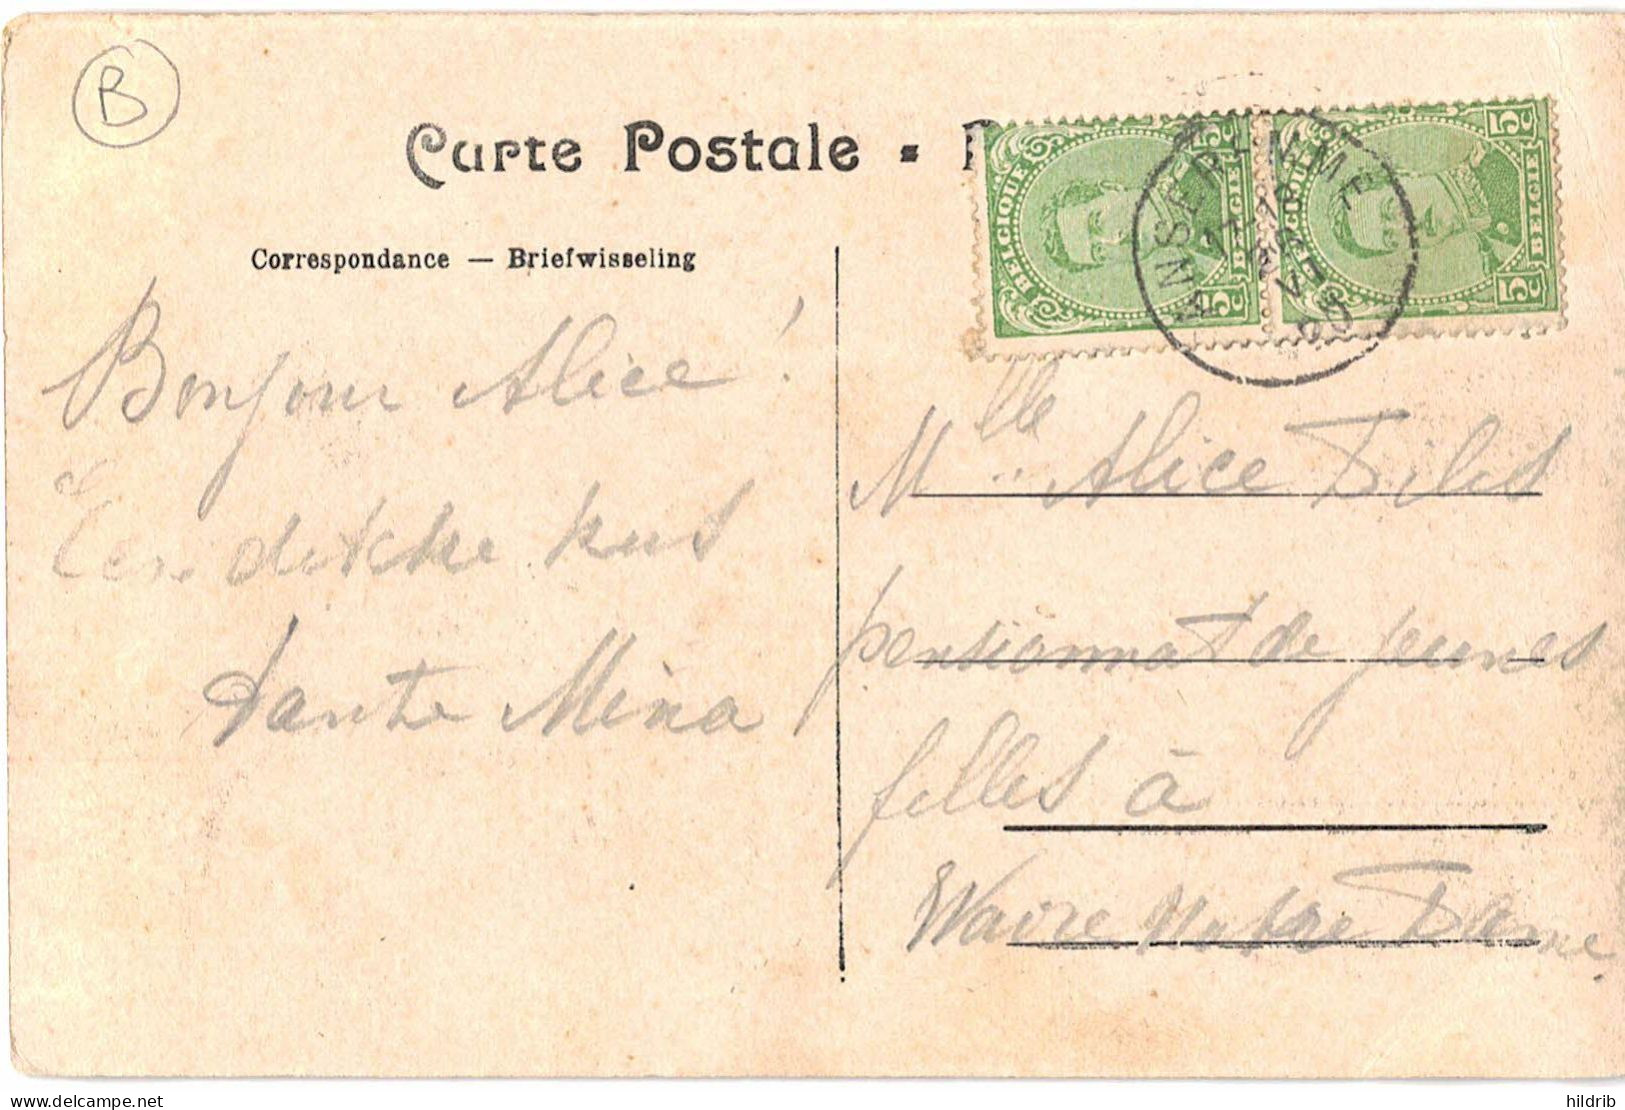 B
Carte Postale -
Correspondance — Briefwisseling
BELGIQUE 5c BELGIË 5c
BELGIQUE 5c BELGIË 5c
ANSEREMME
Bonjour Alice!
Een dikke kus
Tante Mina
Mlle Alice
pensionnat de jeunes
filles à
Wavre Notre Dame.
delcampe.net
hildrib